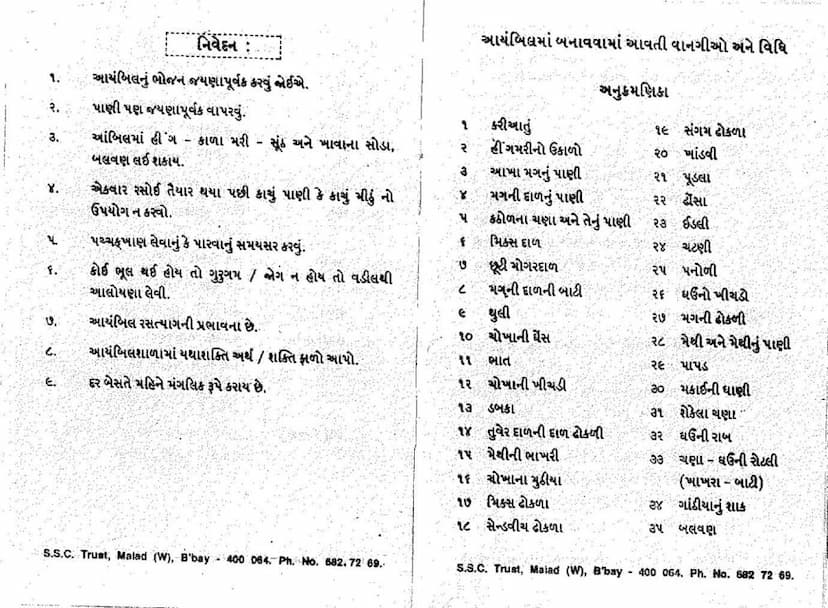 નિવેદન :
૧. આયંબિલનું ભોજન જયણાપૂર્વક કરવું જોઈએ.
૨. પાણી પણ જયણાપૂર્વક વાપરવું.
૩. આંબિલમાં હીંગ - કાળા મરી - સૂંઠ અને ખાવાના સોડા,
બલવણ લઈ શકાય.
૪. એકવાર રસોઈ તૈયાર થયા પછી કાચું પાણી કે કાચું મીઠું નો
ઉપયોગ ન કરવો.
૫. પચ્ચક્ખાણ લેવાનું કે પારવાનું સમયસર કરવું.
૬. કોઈ ભૂલ થઈ હોય તો ગુરુગમ / જોગ ન હોય તો વડીલથી
આલોયણા લેવી.
૭. આયંબિલ રસત્યાગની પ્રભાવના છે.
૮. આયંબિલશાળામાં યથાશક્તિ અર્થ / શક્તિ ફાળો આપો.
૯. દર બેસતે મહિને મંગલિક રૂપે કરાય છે.
S.S.C. Trust, Malad (W), B'bay - 400 064. Ph. No. 682 72 69.
આયંબિલમાં બનાવવામાં આવતી વાનગીઓ અને વિધિ
અનુક્રમણિકા
૧ કરીઆતું
૨ હીંગમરીનો ઉકાળો
૩ આખા મગનું પાણી
૪ મગની દાળનું પાણી
૫ કઠોળના ચણા અને તેનું પાણી
૬ મિક્સ દાળ
૭ છૂટી મોગરદાળ
૮ મગની દાળની બાટી
૯ થુલી
૧૦ ચોખાની ઘેંસ
૧૧ ભાત
૧૨ ચોખાની ખીચડી
૧૩ ડબકા
૧૪ તુવેર દાળની દાળ ઢોકળી
૧૫ મેથીની ભાખરી
૧૬ ચોખાના મુઠીયા
૧૭ મિક્સ ઢોકળા
૧૮ સેન્ડવીચ ઢોકળા
૧૯ સંગમ ઢોકળા
૨૦ ખાંડવી
૨૧ પૂડલા
૨૨ ઢોંસા
૨૩ ઈડલી
૨૪ ચટણી
૨૫ પનોળી
૨૬ ઘઉંનો ખીચડો
૨૭ મગની ઢોકળી
૨૮ મેથી અને મેથીનું પાણી
૨૯ પાપડ
૩૦ મકાઈની ધાણી
૩૧ શેકેલા ચણા
૩૨ ઘઉંની રાબ
૩૩ ચણા - ઘઉંની રોટલી
(ખાખરા - બાટી)
૩૪ ગાંઠીયાનું શાક
૩૫ બલવણ
S.S.C. Trust, Malad (W), B'bay - 400 064. Ph. No. 682 72 69.